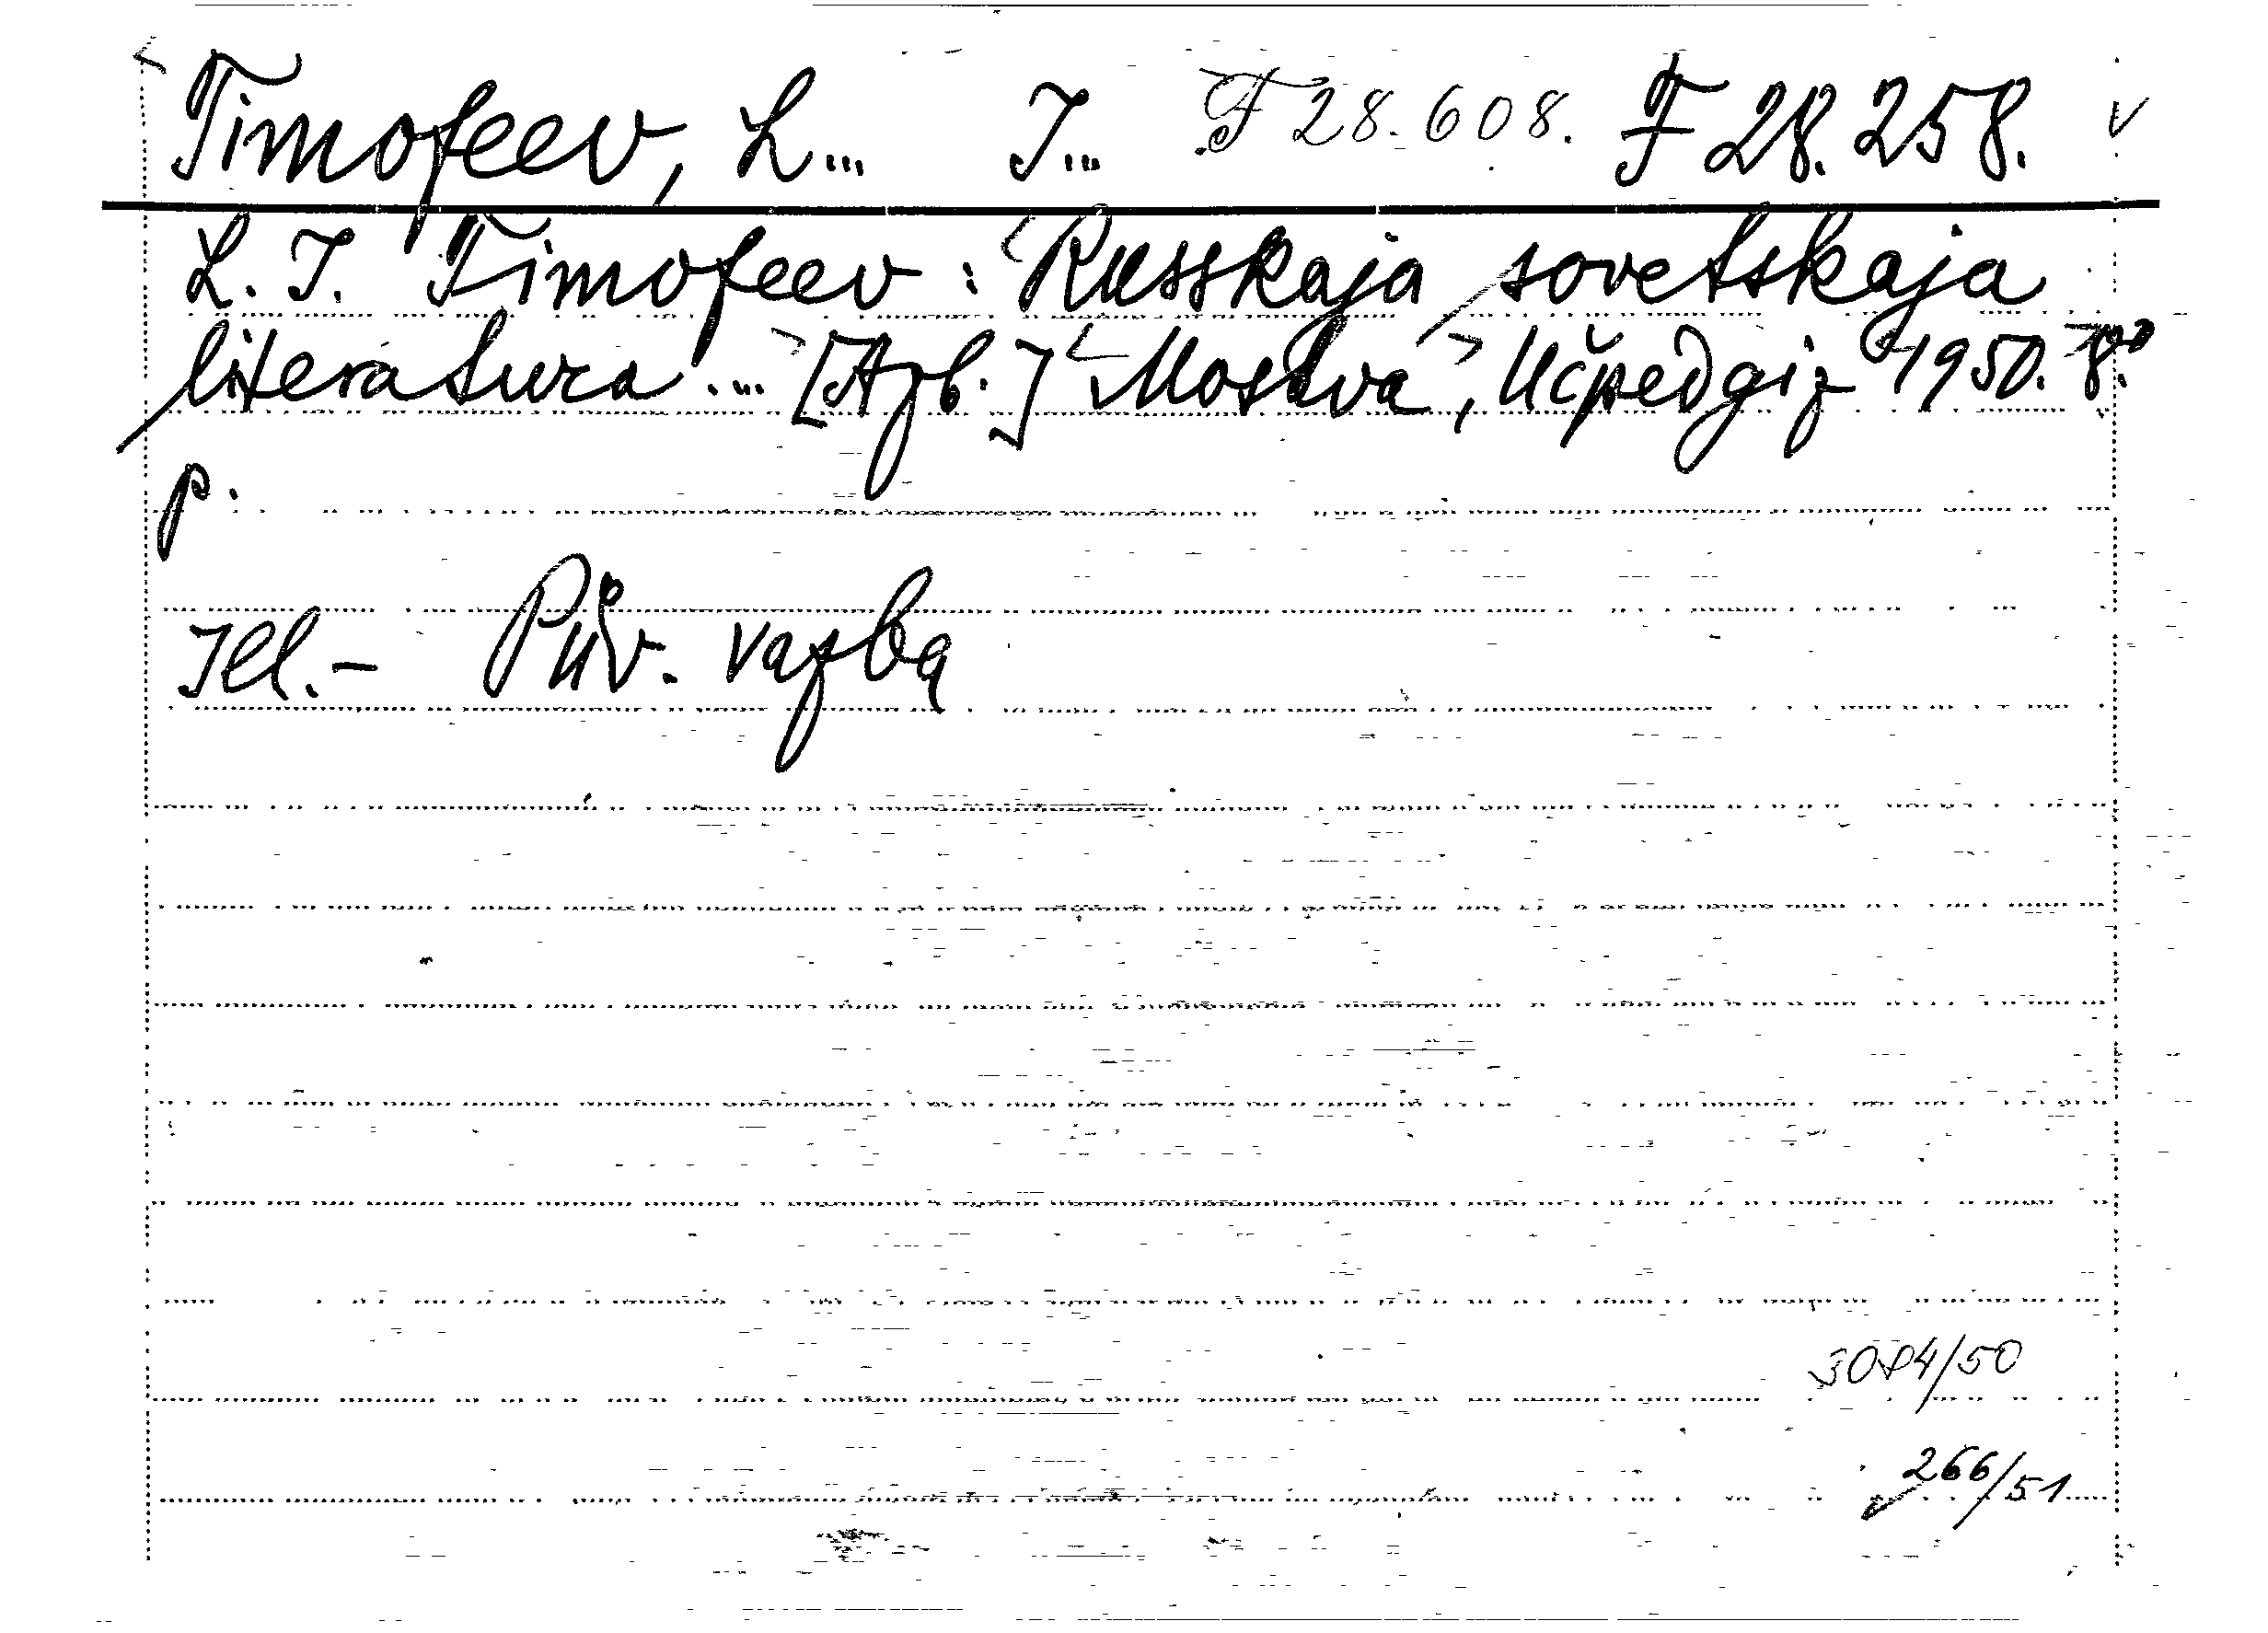 Timofeev, L... I... F 28.608. F 28.258. v
L. I. Timofeev: Russkaja sovetskaja
literatura... [Azb.] Moskva, Učpedgiz 1950. 8°
p.
Ill. - Pův. vazba
3084/50
266/51